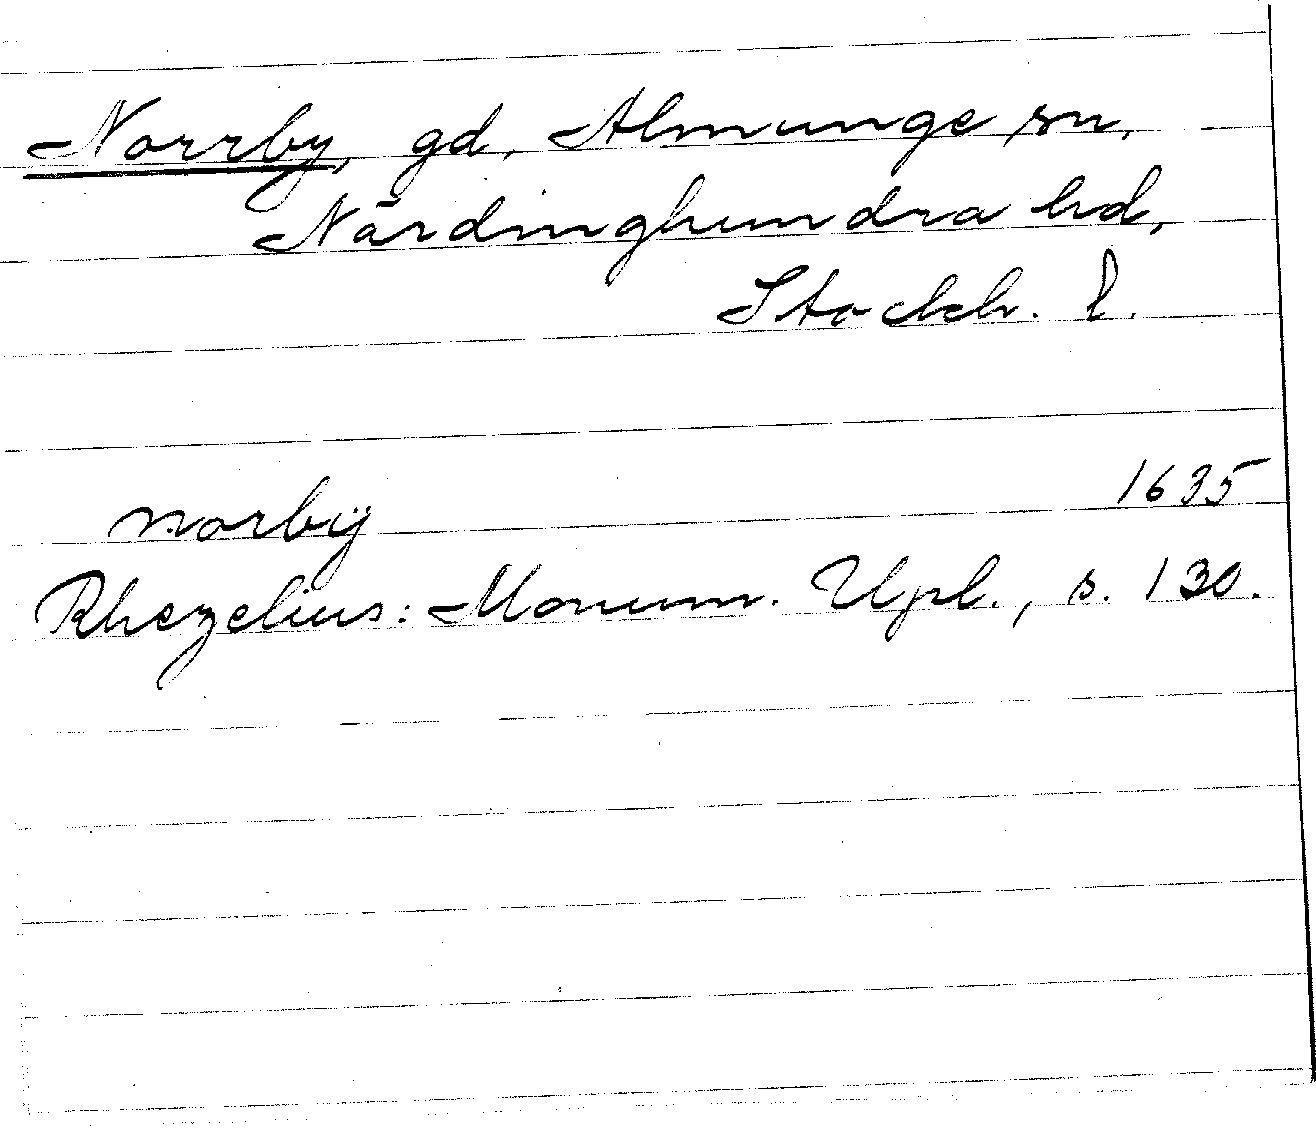 Norrby, gd, Almunge sn,
Närdinghundra hd,
Stockh. l.
norbÿ 1635
Rhezelius: Monum. Upl., s. 130.